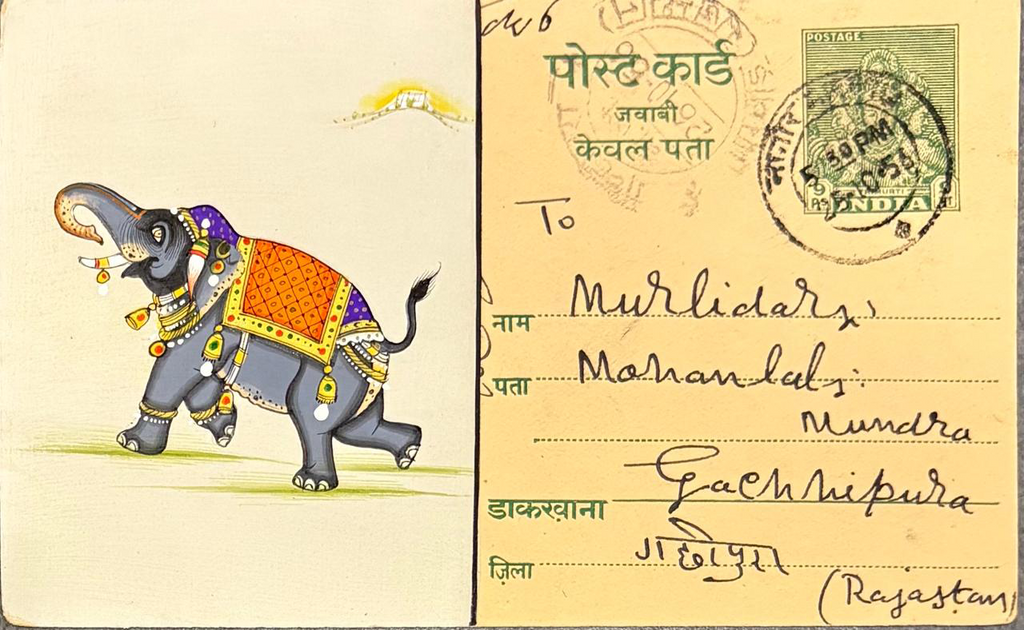 पोस्ट कार्ड
जवाबी
केवल पता
POSTAGE
INDIA
5 30 PM
To
नाम Murlidarji
पता Mohanlalji
Mundra
डाकख़ाना Gachhipura
ज़िला गछीपुरा
(Rajastan)